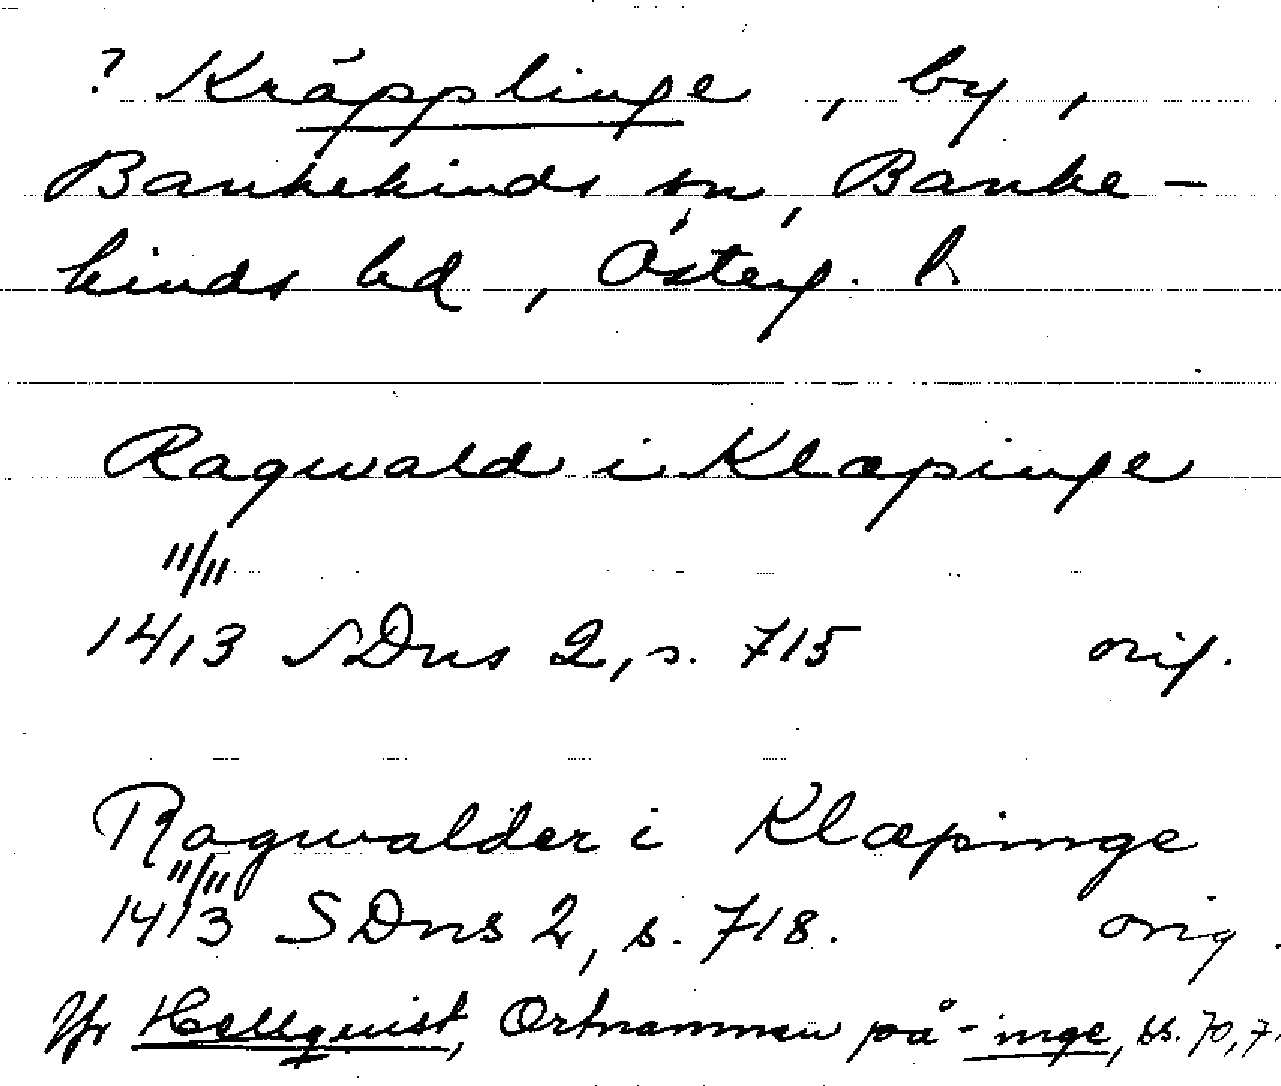 ? Kräpplinge, by,
Bankekinds sn, Banke-
kinds hd, Österg. l.
Ragwald i Klæpinge
11/11
1413 SDns 2, s. 715 orig.
Ragwalder i Klæpinge
11/11
1413 SDns 2, s. 718. orig.
Jfr Hellquist, Ortnamnen på -inge, ss. 70, 7